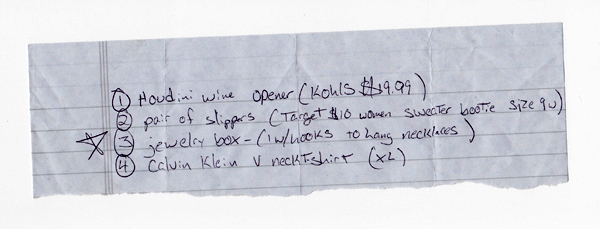 ① Houdini wine opener (Kohls $19.99)
② pair of slippers (Target $10 women sweater bootie size 9w)
③ jewelry box - (1 w/hooks to hang necklaces)
④ Calvin Klein V neck T-shirt (XL)